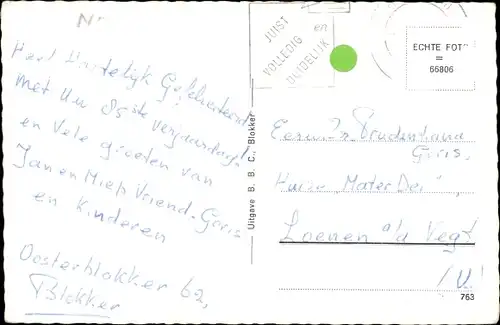 Heel Hartelijk Gefeliciteerd
met Uw 85ste verjaardag.
en Vele groeten van
Jan en Miep Vriend-Goris
en Kinderen
Oosterblokker 62,
Blokker
Uitgave B. B. C., Blokker
JUIST en
VOLLEDIG
DUIDELIJK
ECHTE FOT
=
66806
Eerw. Zr Prudentiana
Goris.
Huize "Mater Dei"
Loenen a/d Vegt
(U.)
763